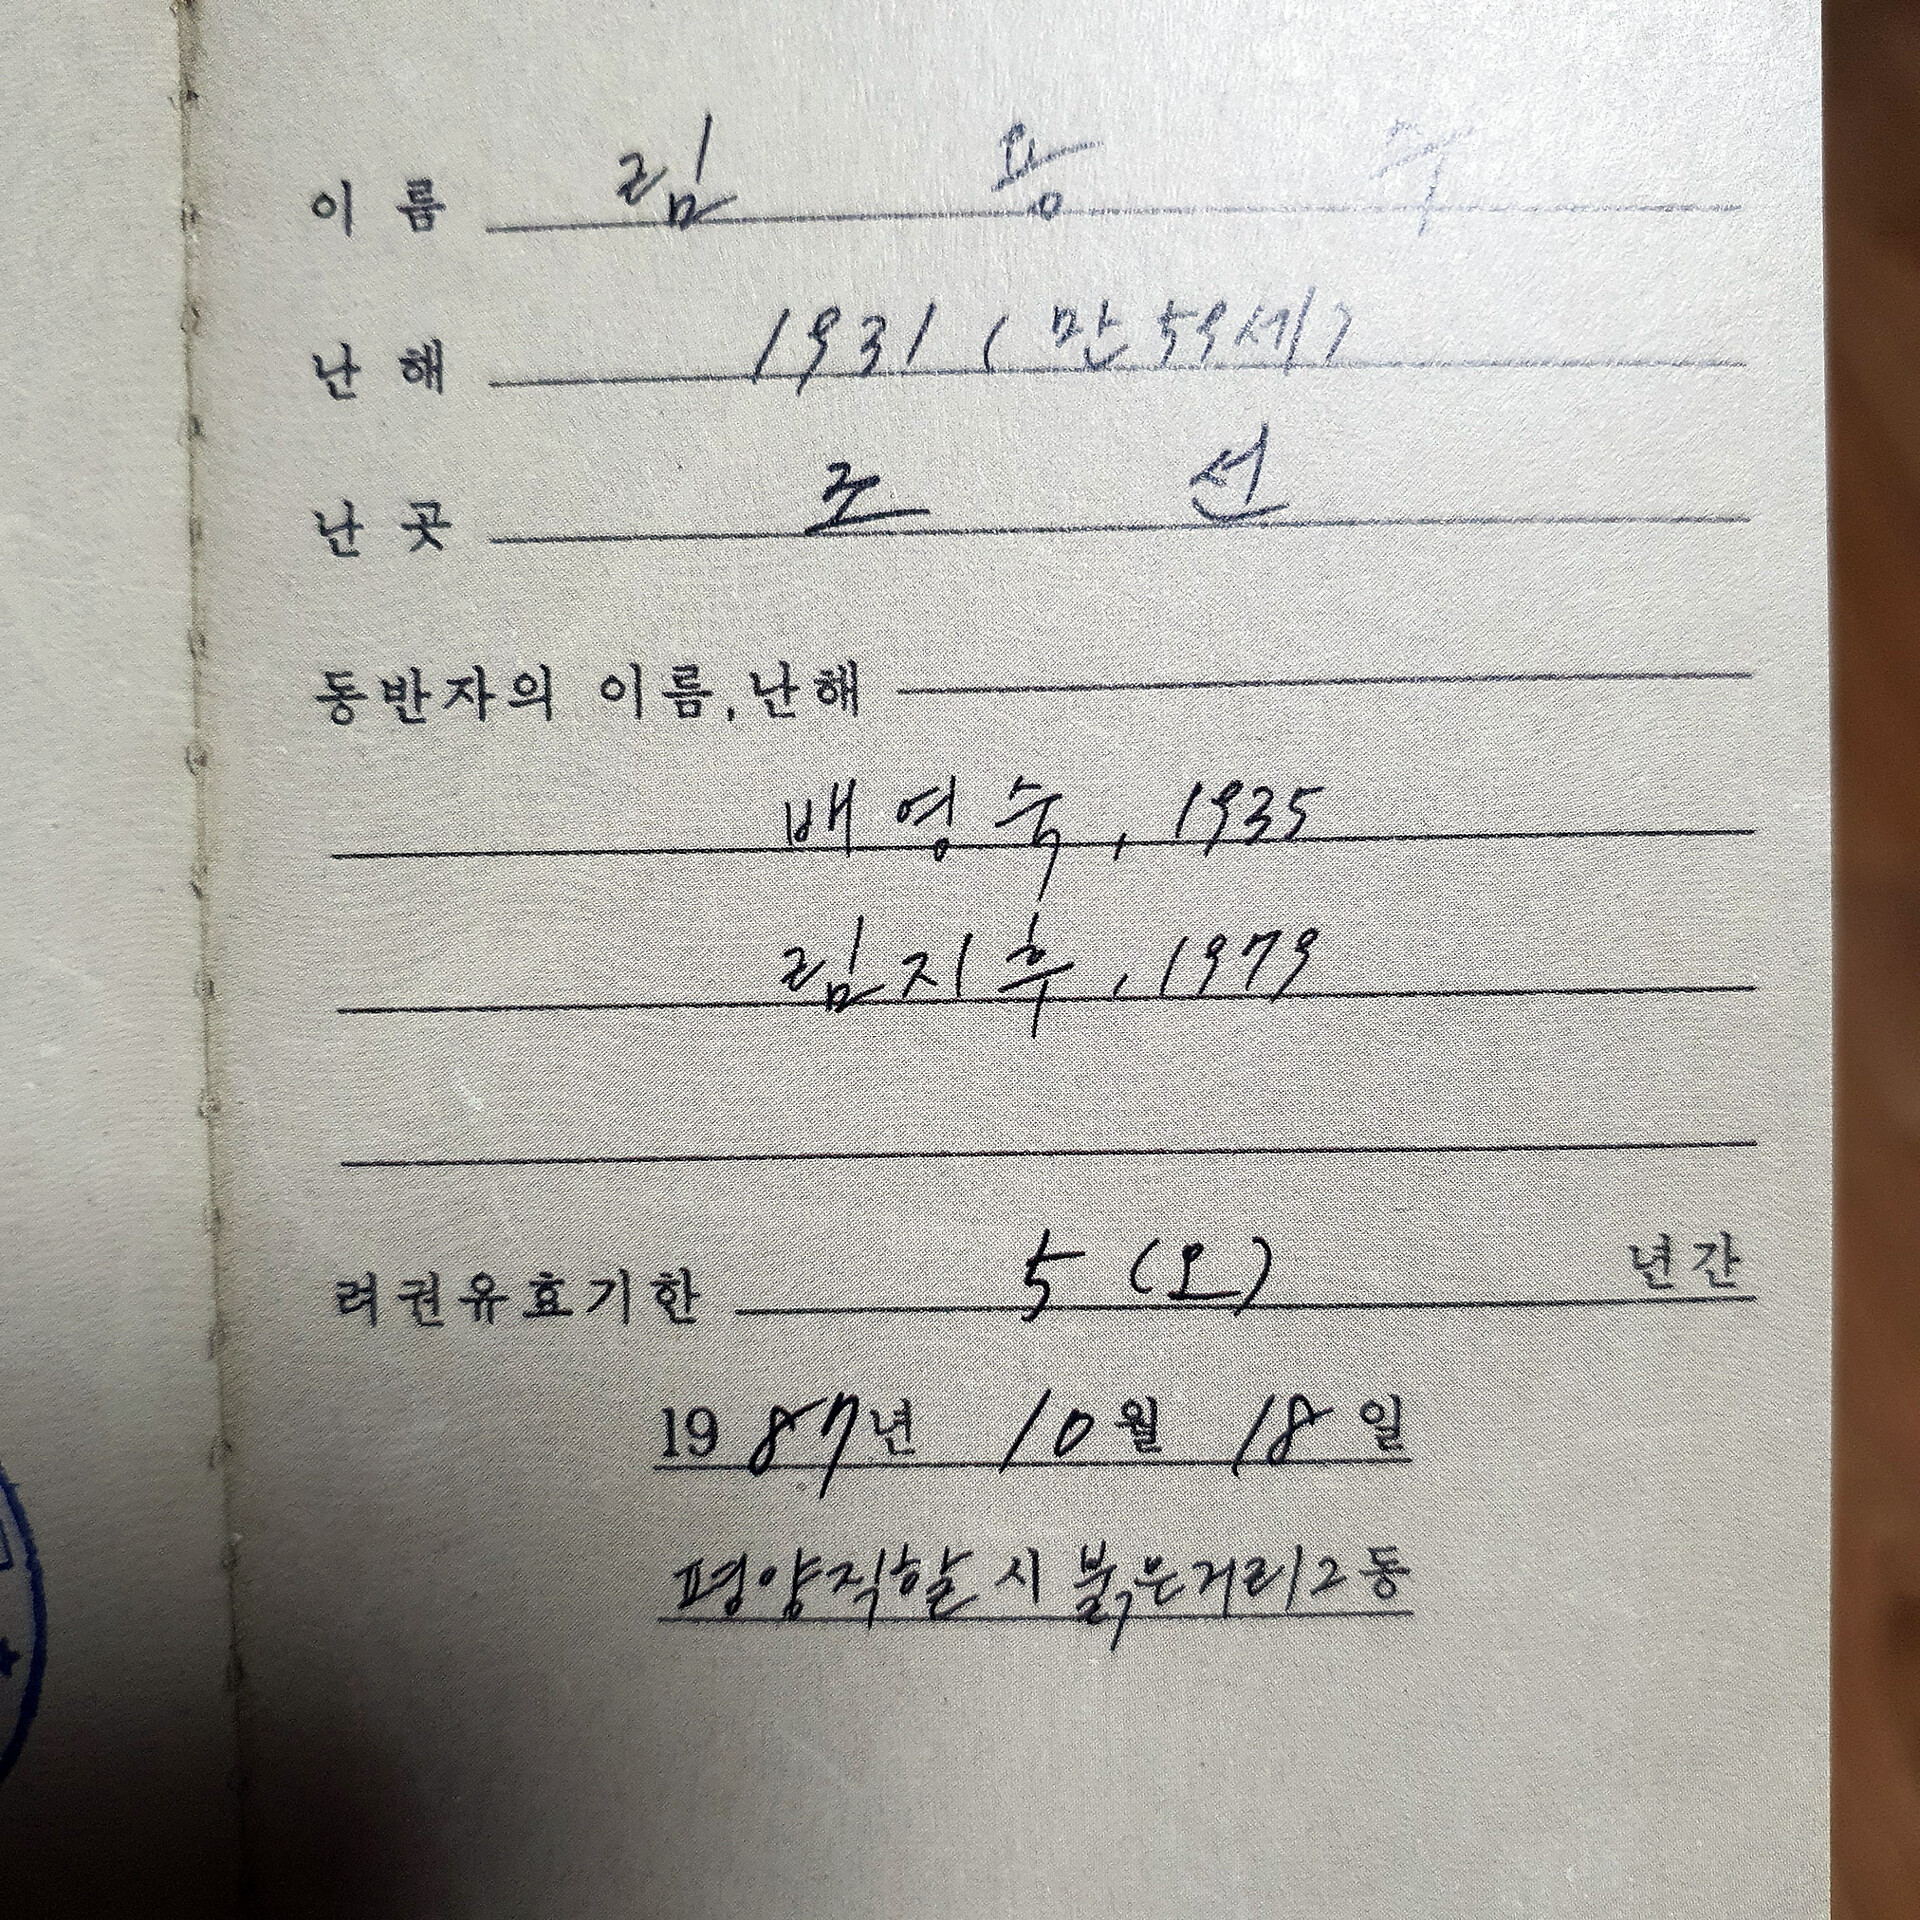 이름 림
난해 1931 (만 59세)
난곳 조 선
동반자의 이름, 난해
배영숙, 1935
림지후, 1979
려권유효기한 5 (오) 년간
1987년 10월 18일
평양직할시 붉은거리2동